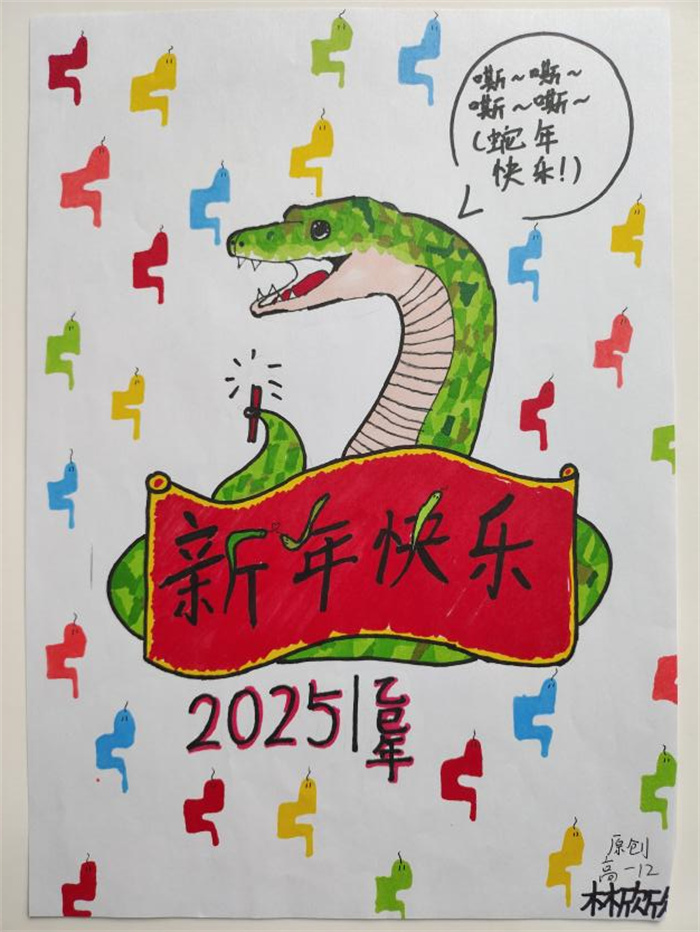 嘶~嘶~
嘶~嘶~
(蛇年
快乐!)
新年快乐
2025|乙巳年
原创
高一12
林欣